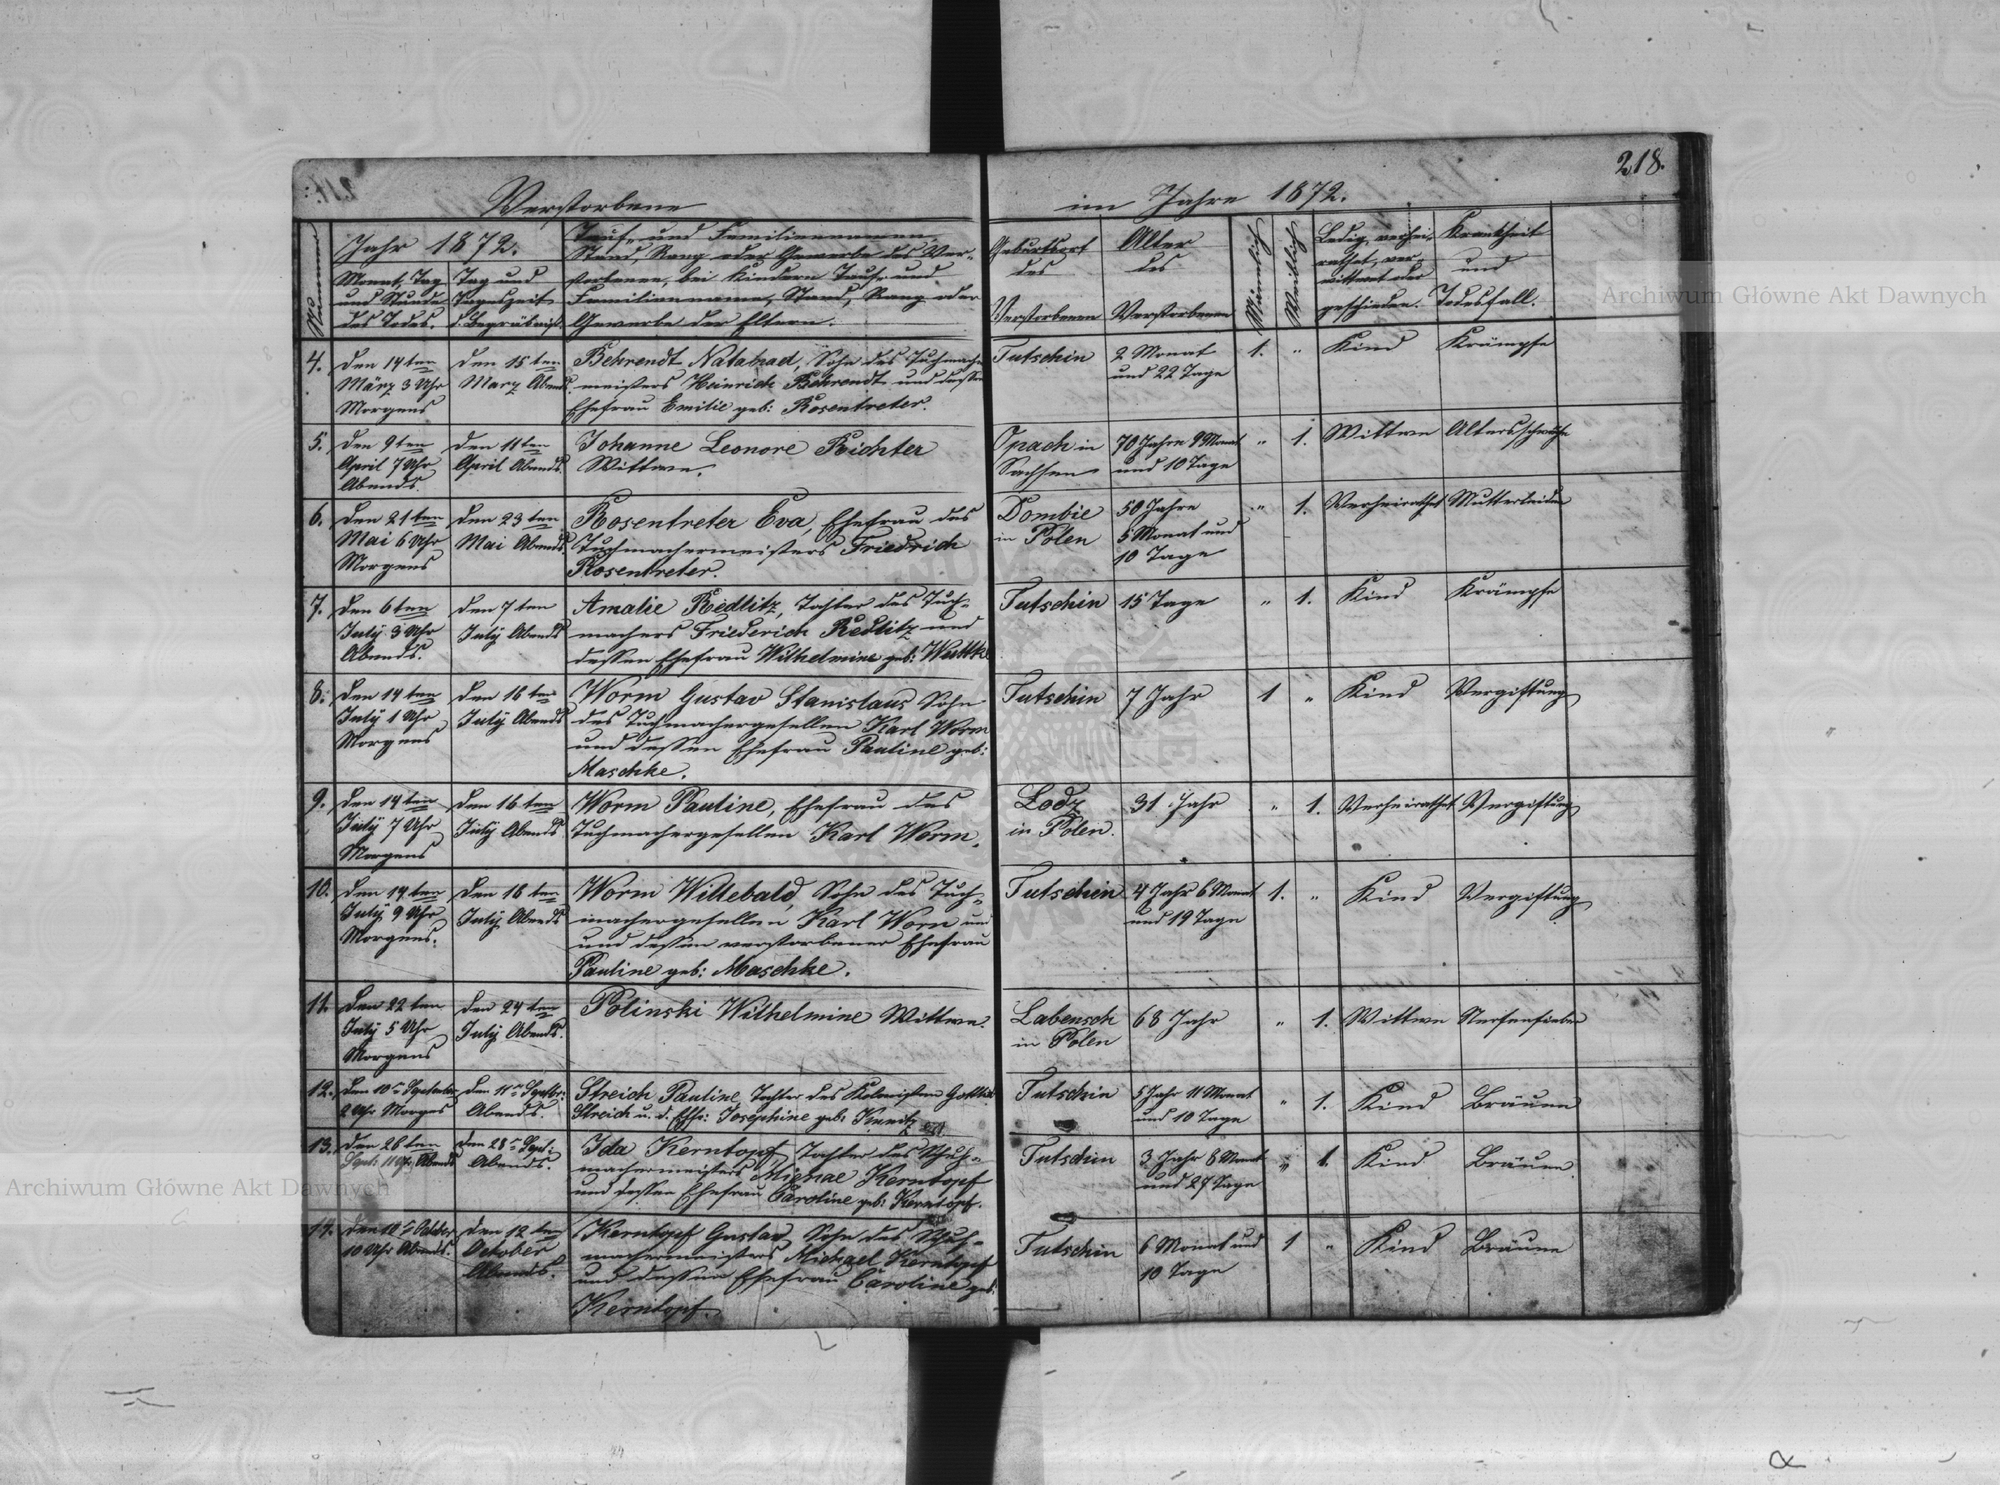 218.
Verstorbene im Jahre 1872.
Nummer
Jahr 1872.
Monat, Tag und Stunde des Todes.
Tag und Tageszeit d. Begräbniß.
Tauf- und Familiennamen,
Stand, Rang oder Gewerbe des Ver-
storbenen, bei Kindern Tauf- und
Familienname, Stand, Rang oder
Gewerbe der Eltern.
Geburtsort des Verstorbenen
Alter des Verstorbenen
Männlich
Weiblich
Ledig, verhei-
rathet, ver-
wittwet oder
geschieden.
Krankheit und Todesfall.
4. den 14ten März 3 Uhr Morgens
den 15ten März Abends.
Behrendt Natahael, Sohn des Tuchmacher
meisters Heinrich Behrendt und dessen
Ehefrau Emilie geb: Rosentreter.
Tutschin
2 Monat
und 22 Tage
1. " Kind Krämpfe
5. den 9ten April 7 Uhr Abends.
den 11ten April Abends.
Johanne Leonore Richter
Wittwe.
Opach in
Sachsen
70 Jahre 9 Monat
und 10 Tage
" 1. Wittwe Altersschwäche
6. den 21ten Mai 6 Uhr Morgens
den 23ten Mai Abends.
Rosentreter Eva, Ehefrau des
Tuchmachermeisters Friedrich
Rosentreter.
Dombie
in Polen
50 Jahre
5 Monat und
10 Tage
" 1. Verheirathet Mutterleiden
7. den 6ten July 3 Uhr Abends.
den 7ten July Abends
Amalie Redlitz, Tochter des Tuch-
machers Friederich Redlitz und
dessen Ehefrau Wilhelmine geb: Wuttke
Tutschin
15 Tage
" 1. Kind Krämpfe
8. den 14ten July 1 Uhr Morgens
den 16ten July Abends
Worm Gustav Stanislaus Sohn
des Tuchmachergesellen Karl Worm
und dessen Ehefrau Pauline geb:
Maschke.
Tutschin
7 Jahr
1 " Kind Vergiftung
9. den 14ten July 7 Uhr Morgens
den 16ten July Abends
Worm Pauline, Ehefrau des
Tuchmachergesellen Karl Worm.
Lodz
in Polen.
31 Jahr
" 1. Verheirathet Vergiftung
10. den 14ten July 9 Uhr Morgens.
den 16ten July Abends
Worm Willebald, Sohn des Tuch-
machergesellen Karl Worm und
und dessen verstorbener Ehefrau
Pauline geb: Maschke.
Tutschin
4 Jahr 6 Monat
und 19 Tage
1. " Kind Vergiftung
11. den 22ten July 5 Uhr Morgens
den 24ten July Abends.
Polinski Wilhelmine Wittwe.
Labensch
in Polen
68 Jahr
" 1. Wittwe Nervenfieber
12. den 10ten September 2 Uhr Morgens
den 11ten Septbr: Abends.
Streich Pauline, Tochter des Kolonisten Gottlieb
Streich u. d. Ehefr: Josephine geb:
Tutschin
5 Jahr 11 Monat
und 10 Tage
" 1. Kind Bräune
13. den 26ten Sept: 11 Uhr Abends
den 28ten Sept: Abends.
Ida Kerntopf Tochter des Schuh-
machermeisters Michael Kerntopf
und dessen Ehefrau Caroline geb: Kerntopf.
Tutschin
3 Jahr 8 Monat
und 27 Tage
" 1. Kind Bräune.
14. den 10ten October 10 Uhr Abends.
den 12ten October Abends.
Kerntopf Gustav, Sohn des Schuh-
machermeisters Michael Kerntopf
und dessen Ehefrau Caroline geb:
Kerntopf.
Tutschin
6 Monat und
10 Tage
1 " Kind Bräune
Archiwum Główne Akt Dawnych
Archiwum Główne Akt Dawnych